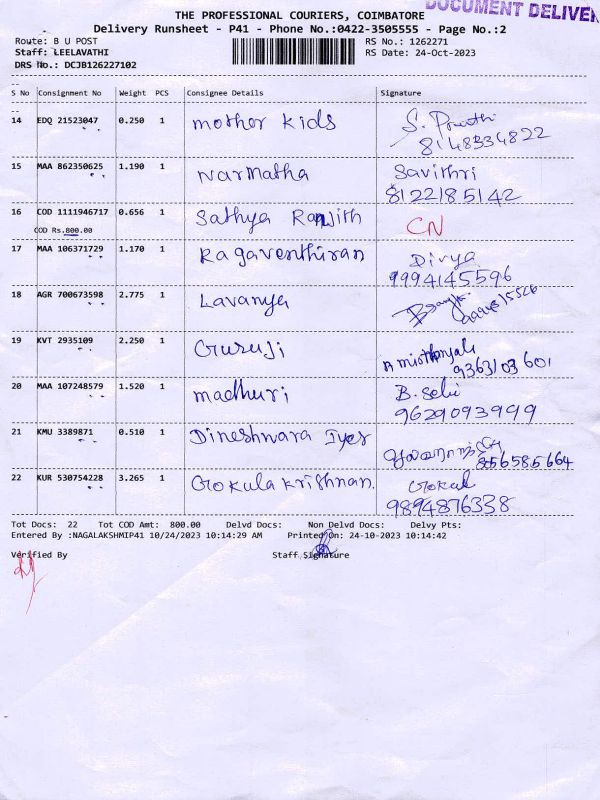 DOCUMENT DELIVER
THE PROFESSIONAL COURIERS, COIMBATORE
Delivery Runsheet - P41 - Phone No.:0422-3505555 - Page No.:2
Route: B U POST RS No.: 1262271
Staff: LEELAVATHI RS Date: 24-Oct-2023
DRS No.: DCJB126227102
S No Consignment No Weight PCS Consignee Details Signature
14 EDQ 21523047 0.250 1 mother kids S. Preethi
8148334822
15 MAA 862350625 1.190 1 Narmatha Savithri
8122185142
16 COD 1111946717 0.656 1 Sathya Ranjith CN
COD Rs.800.00
17 MAA 106371729 1.170 1 Ragaventhiran Divya
9994145596
18 AGR 700673598 2.775 1 Lavanya
19 KVT 2935109 2.250 1 Guruji
9363103601
20 MAA 107248579 1.520 1 madhuri B. Selvi
9629093999
21 KMU 3389871 0.510 1 Dineshwara Iyer
856585664
22 KUR 530754228 3.265 1 Gokula krishnan. Gokul
9894876338
Tot Docs: 22 Tot COD Amt: 800.00 Delvd Docs: Non Delvd Docs: Delvy Pts:
Entered By :NAGALAKSHMIP41 10/24/2023 10:14:29 AM Printed On: 24-10-2023 10:14:42
Verified By Staff Signature